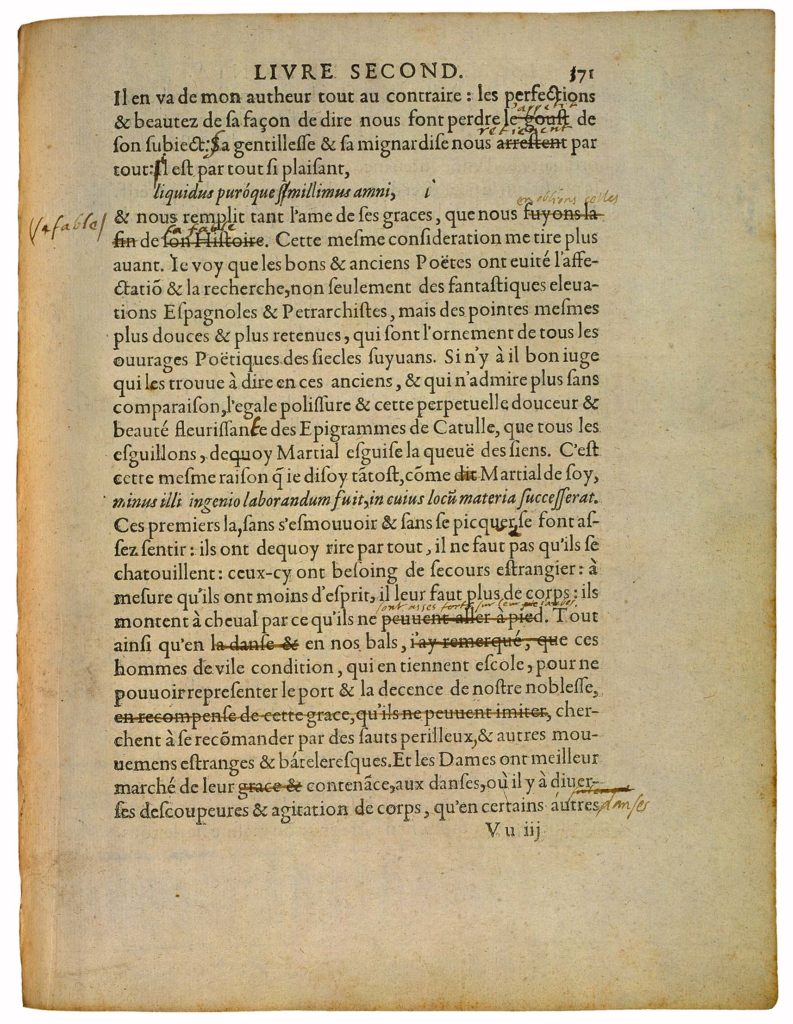 LIVRE SECOND. 171
Il en va de mon autheur tout au contraire : les perfections
& beautez de sa façon de dire nous font perdre l'appetit
le goust de
son subiect: Sa gentillesse & sa mignardise nous retienent
arrestent par
tout: Il est par tout si plaisant,
liquidus puróque simillimus amni, i
en oblions celles
& nous remplit tant l'ame de ses graces, que nous fuyons la
la fable
(la fable)
fin de son Histoire. Cette mesme consideration me tire plus
auant. Ie voy que les bons & anciens Poëtes ont euité l'affe-
ctatiõ & la recherche, non seulement des fantastiques eleua-
tions Espagnoles & Petrarchistes, mais des pointes mesmes
plus douces & plus retenues, qui sont l'ornement de tous les
ouurages Poëtiques des siecles suyuans. Si n'y à il bon iuge
qui les trouue à dire en ces anciens, & qui n'admire plus sans
comparaison, l'egale polissure & cette perpetuelle douceur &
beauté fleurissante des Epigrammes de Catulle, que tous les
esguillons, dequoy Martial esguise la queuë des siens. C'est
cette mesme raison q̃ ie disoy tãtost, cõme dit Martial de soy,
minus illi ingenio laborandum fuit, in cuius locũ materia successerat.
Ces premiers la, sans s'esmouuoir & sans se picquer se font as-
sez sentir : ils ont dequoy rire par tout, il ne faut pas qu'ils se
chatouillent : ceux-cy ont besoing de secours estrangier : à
mesure qu'ils ont moins d'esprit, il leur faut plus de corps : ils
sont asses forts sur leurs jambes
montent à cheual par ce qu'ils ne peuuent aller à pied. Tout
ainsi qu'en la danse & en nos bals, i'ay remerqué, que ces
hommes de vile condition, qui en tiennent escole, pour ne
pouuoir representer le port & la decence de nostre noblesse,
en recompense de cette grace, qu'ils ne peuuent imiter, cher-
chent à se recõmander par des sauts perilleux, & autres mou-
uemens estranges & bâteleresques. Et les Dames ont meilleur
marché de leur grace & contenãce, aux danses, où il y à diuer-
ses descoupeures & agitation de corps, qu'en certains autres danses
V u iij